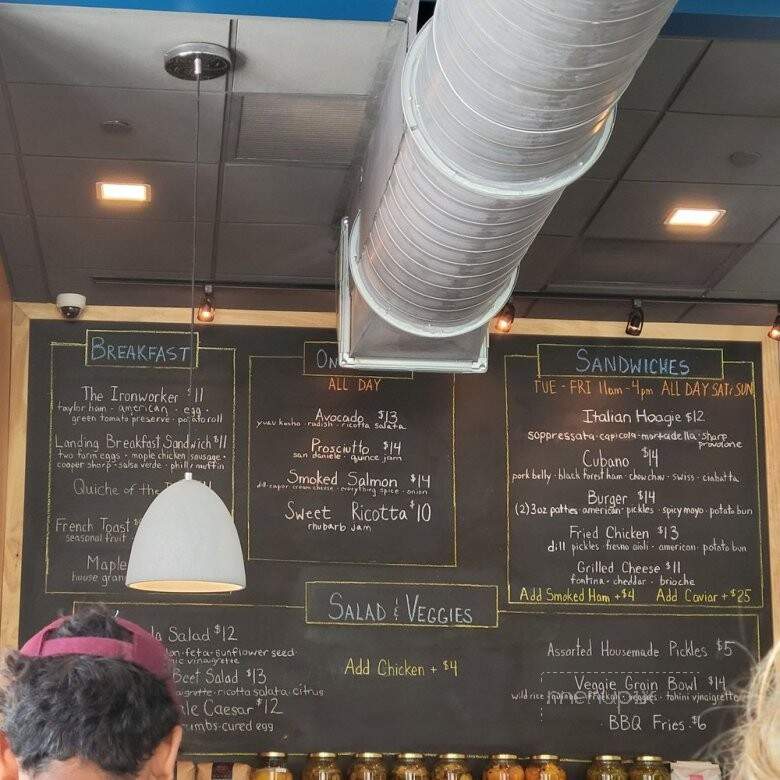 BREAKFAST
The Ironworker $11
taylor ham - american - egg -
green tomato preserve - potato roll
Landing Breakfast Sandwich $11
two farm eggs - maple chicken sausage -
cooper sharp - salsa verde - philly muffin
Quiche of the
French Toast $
seasonal fruit
Maple
house gran
ON
ALL DAY
Avocado $13
yuzu kosho - radish - ricotta salata
Prosciutto $14
san daniele - quince jam
Smoked Salmon $14
dill-caper cream cheese - everything spice - onion
Sweet Ricotta $10
rhubarb jam
SANDWICHES
TUE - FRI 11am - 4pm ALL DAY SAT & SUN
Italian Hoagie $12
soppressata - capicola - mortadella - sharp
provolone
Cubano $14
pork belly - black forest ham - chow chow - swiss - ciabatta
Burger $14
(2) 3oz patties american - pickles - spicy mayo - potato bun
Fried Chicken $13
dill pickles - fresno aioli - american - potato bun
Grilled Cheese $11
fontina - cheddar - brioche
Add Smoked Ham + $4 Add Caviar + $25
SALAD & VEGGIES
la Salad $12
lon - feta - sunflower seed -
ic vinaigrette
Beet Salad $13
aigrette - ricotta salata - citrus
le Caesar $12
umbs - cured egg
Add Chicken + $4
Assorted Housemade Pickles $5
Veggie Grain Bowl $14
wild rise - veggies - tahini vinaigrette
menupix
BBQ Fries - $6